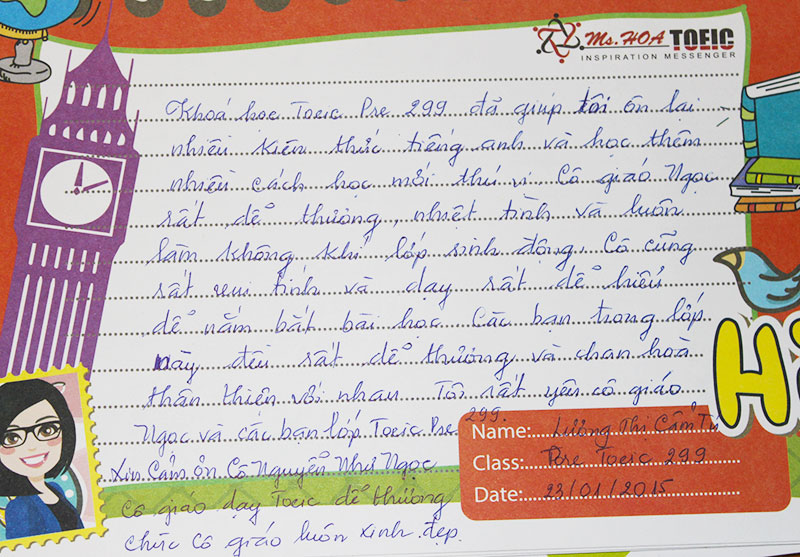 Ms. HOA TOEIC
INSPIRATION MESSENGER
Khoá học Toeic Pre 299 đã giúp tôi ôn lại
nhiều kiến thức tiếng anh và học thêm
nhiều cách học mới thú vị. Cô giáo Ngọc
rất dễ thương, nhiệt tình và luôn
làm không khí lớp sinh động. Cô cũng
rất vui tính và dạy rất dễ hiểu
dễ nắm bắt bài học. Các bạn trong lớp
này đều rất dễ thương và chan hoà
thân thiện với nhau. Tôi rất yêu cô giáo
Ngọc và các bạn lớp Toeic Pre 299.
Xin Cảm ơn Cô Nguyễn Như Ngọc
Cô giáo dạy Toeic dễ thương
chúc cô giáo luôn xinh đẹp.
Name: Lương Thị Cẩm Tú
Class: Pre Toeic 299
Date: 23/01/2015